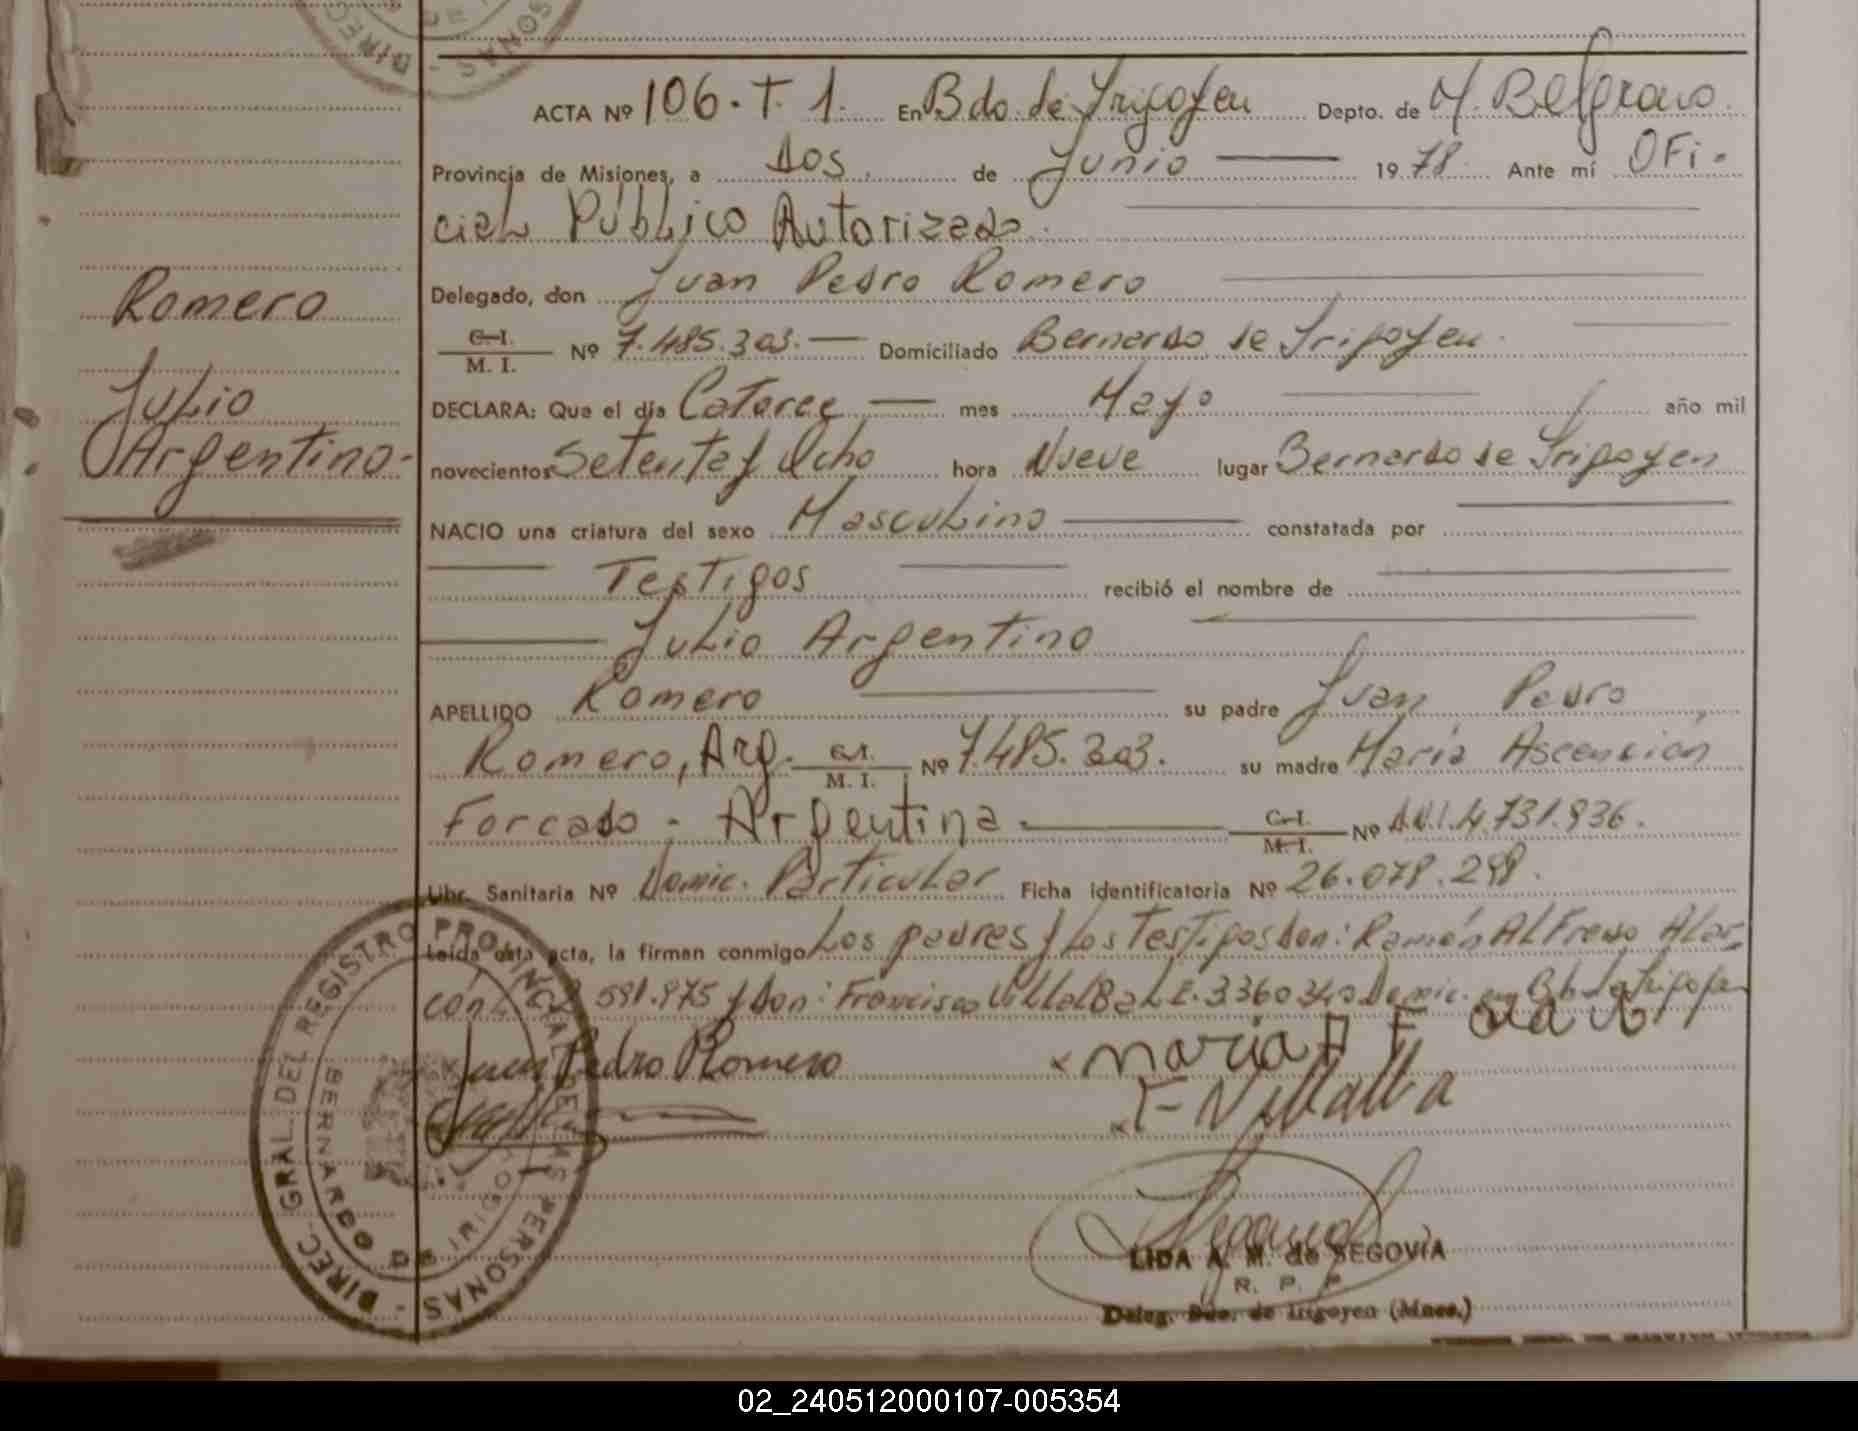 ACTA Nº 106. T. 1. En Bdo. de Irigoyen Depto. de M. Belgrano.
Provincia de Misiones, a dos de Junio 1978. Ante mí OFi-
ciaL PúbLico Autorizado.
Delegado, don Juan Pedro Romero
C. I. / M. I. Nº 7.485.303.— Domiciliado Bernardo de Irigoyen.
DECLARA: Que el día Catorce mes Mayo año mil
novecientos Setenta y Ocho hora Nueve lugar Bernardo de Irigoyen
NACIO una criatura del sexo MascuLino constatada por
Testigos recibió el nombre de
JuLio Argentino
APELLIDO Romero su padre Juan Pedro
Romero, Arg. C. I. / M. I. Nº 7.485.303. su madre María Ascención
Forcado - Argentina C. I. / M. I. Nº D.N.I. 4.731.936.
Libr. Sanitaria Nº Domic. ParticuLar Ficha identificatoria Nº 26.078.298.
Leída esta acta, la firman conmigo Los padres y Los Testigos don: Ramón ALFredo ALar-
cón 591.975 y don: Francisco ViLLaLBa L.E. 3.360.340 Domic. en Irigoyen
Juan Pedro Romero
Maria A F
F- Villalba
LIDA A. M. de SEGOVIA
R. P. P.
Deleg. Bdo. de Irigoyen (Mnes.)
Romero
JuLio
Argentino-
DIREC. GRAL. DEL REGISTRO PROVINCIAL DE LAS PERSONAS -
BERNARDO DE IRIGOYEN
DIREC
DE
SONAS -
02_240512000107-005354